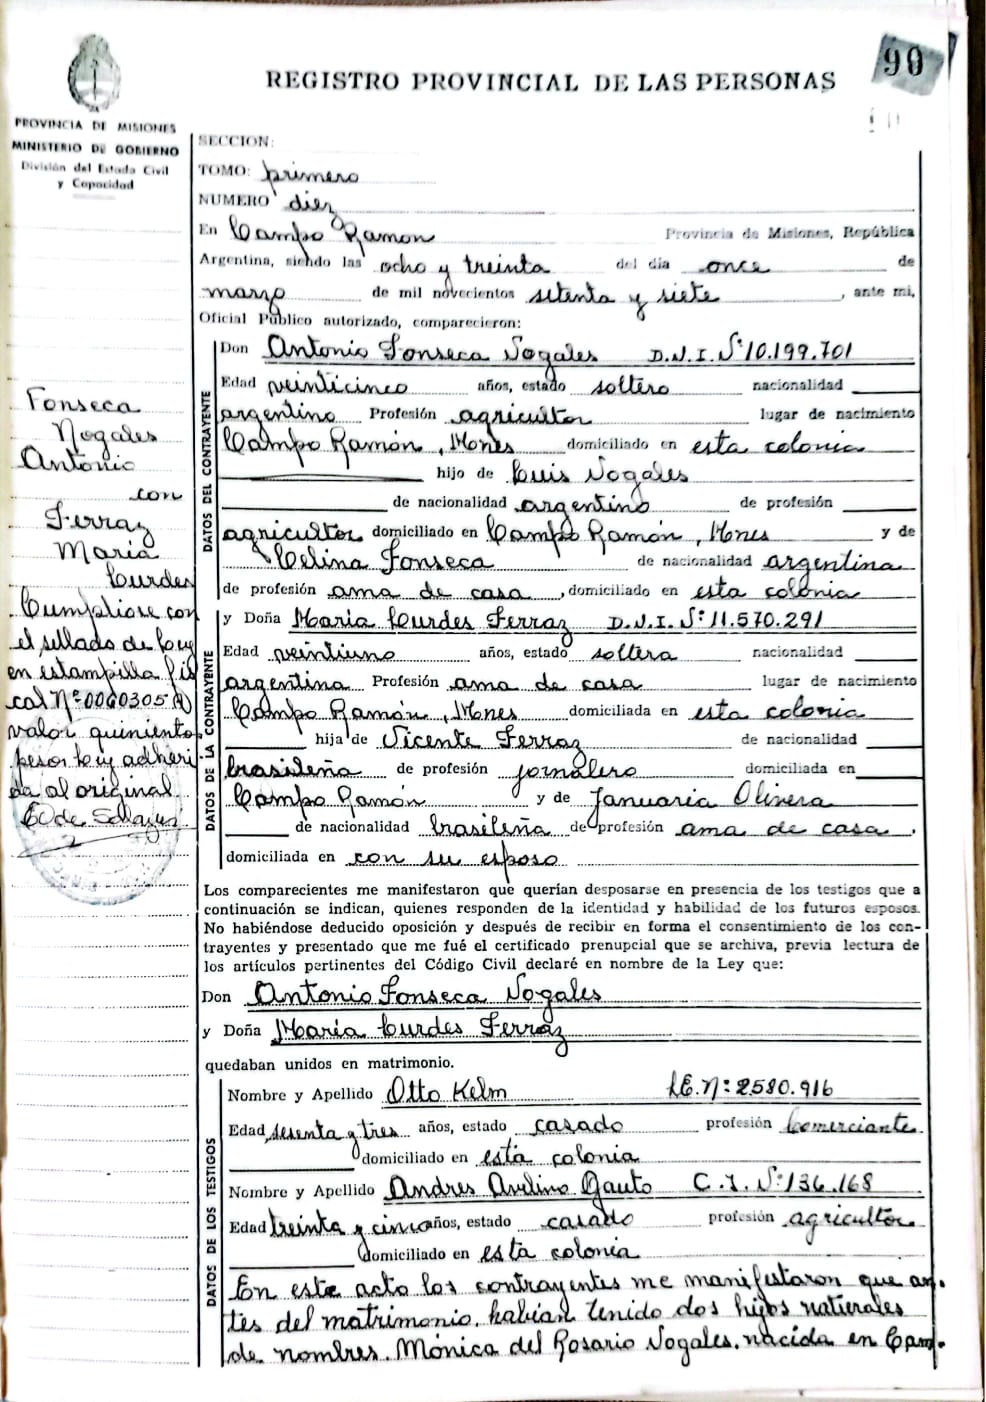 90
REGISTRO PROVINCIAL DE LAS PERSONAS
PROVINCIA DE MISIONES
MINISTERIO DE GOBIERNO
División del Estado Civil
y Capacidad
SECCION:
TOMO: primero
NUMERO diez
En Campo Ramon Provincia de Misiones, República
Argentina, siendo las ocho y treinta del día once de
marzo de mil novecientos setenta y siete, ante mi,
Oficial Público autorizado, comparecieron:
DATOS DEL CONTRAYENTE
Don Antonio Fonseca Nogales D.N.I. Nº 10.199.701
Edad veinticinco años, estado soltero nacionalidad
argentino Profesión agricultor lugar de nacimiento
Campo Ramón, Mnes domiciliado en esta colonia
hijo de Luis Nogales
de nacionalidad argentino de profesión
agricultor domiciliado en Campo Ramón, Mnes y de
Celina Fonseca de nacionalidad argentina
de profesión ama de casa, domiciliado en esta colonia
DATOS DE LA CONTRAYENTE
y Doña María Lurdes Ferraz D.N.I. Nº 11.570.291
Edad veintiuno años, estado soltera nacionalidad
argentina Profesión ama de casa lugar de nacimiento
Campo Ramón, Mnes domiciliada en esta colonia
hija de Vicente Ferraz de nacionalidad
brasileña de profesión jornalero domiciliada en
Campo Ramón y de Januaria Olivera
de nacionalidad brasileña de profesión ama de casa,
domiciliada en con su esposo
Fonseca
Nogales
Antonio
con
Ferraz
María
Lurdes
Cumpliose con
el sellado de Ley
en estampilla fis
cal Nº 0060305
valor quinientos
pesos ley adheri
da al original
Los comparecientes me manifestaron que querían desposarse en presencia de los testigos que a
continuación se indican, quienes responden de la identidad y habilidad de los futuros esposos.
No habiéndose deducido oposición y después de recibir en forma el consentimiento de los con-
trayentes y presentado que me fué el certificado prenupcial que se archiva, previa lectura de
los artículos pertinentes del Código Civil declaré en nombre de la Ley que:
Don Antonio Fonseca Nogales
y Doña María Lurdes Ferraz
quedaban unidos en matrimonio.
DATOS DE LOS TESTIGOS
Nombre y Apellido Otto Kelm L.E. Nº: 2580.916
Edad sesenta y tres años, estado casado profesión Comerciante
domiciliado en esta colonia
Nombre y Apellido Andres Avelino Gauto C.I. Nº 136.168
Edad treinta y cinco años, estado casado profesión agricultor
domiciliado en esta colonia
En este acto los contrayentes me manifestaron que an-
tes del matrimonio, habían tenido dos hijos naturales
de nombres. Mónica del Rosario Nogales. nacida en Cam-